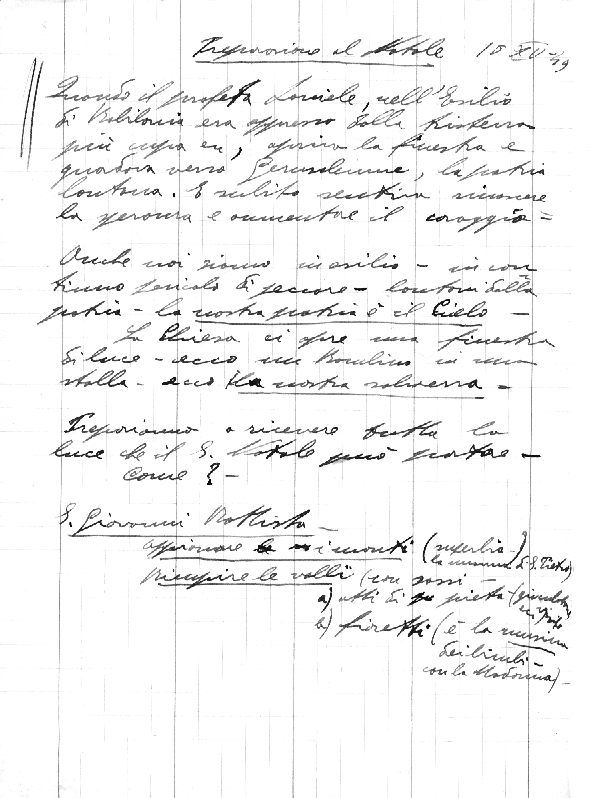 Preparazione al Natale 10 XII-
Quando il profeta Daniele, nell'Esilio
di Babilonia era oppresso dalla tristezza
più cupa, apriva la finestra e
guardava verso Gerusalemme, la patria
lontana. E subito sentiva rinascere
la speranza e aumentare il coraggio =
Anche noi siamo in esilio - in con
tinuo pericolo di peccare - lontani dalla
patria - la nostra patria è il Cielo -
La Chiesa ci apre una finestra
di luce - ecco un Bambino in una
stalla - ecco la nostra salvezza -
Prepariamo a ricevere tutta la
luce che il S. Natale può portare -
Come? -
S. Giovanni Battista -
appianare i monti (superbia)
la di S. Pietro)
Riempire le valli (con sassi -
a) atti di pietà
b) fioretti (è la
dei bimbi -
con la Madonna) -